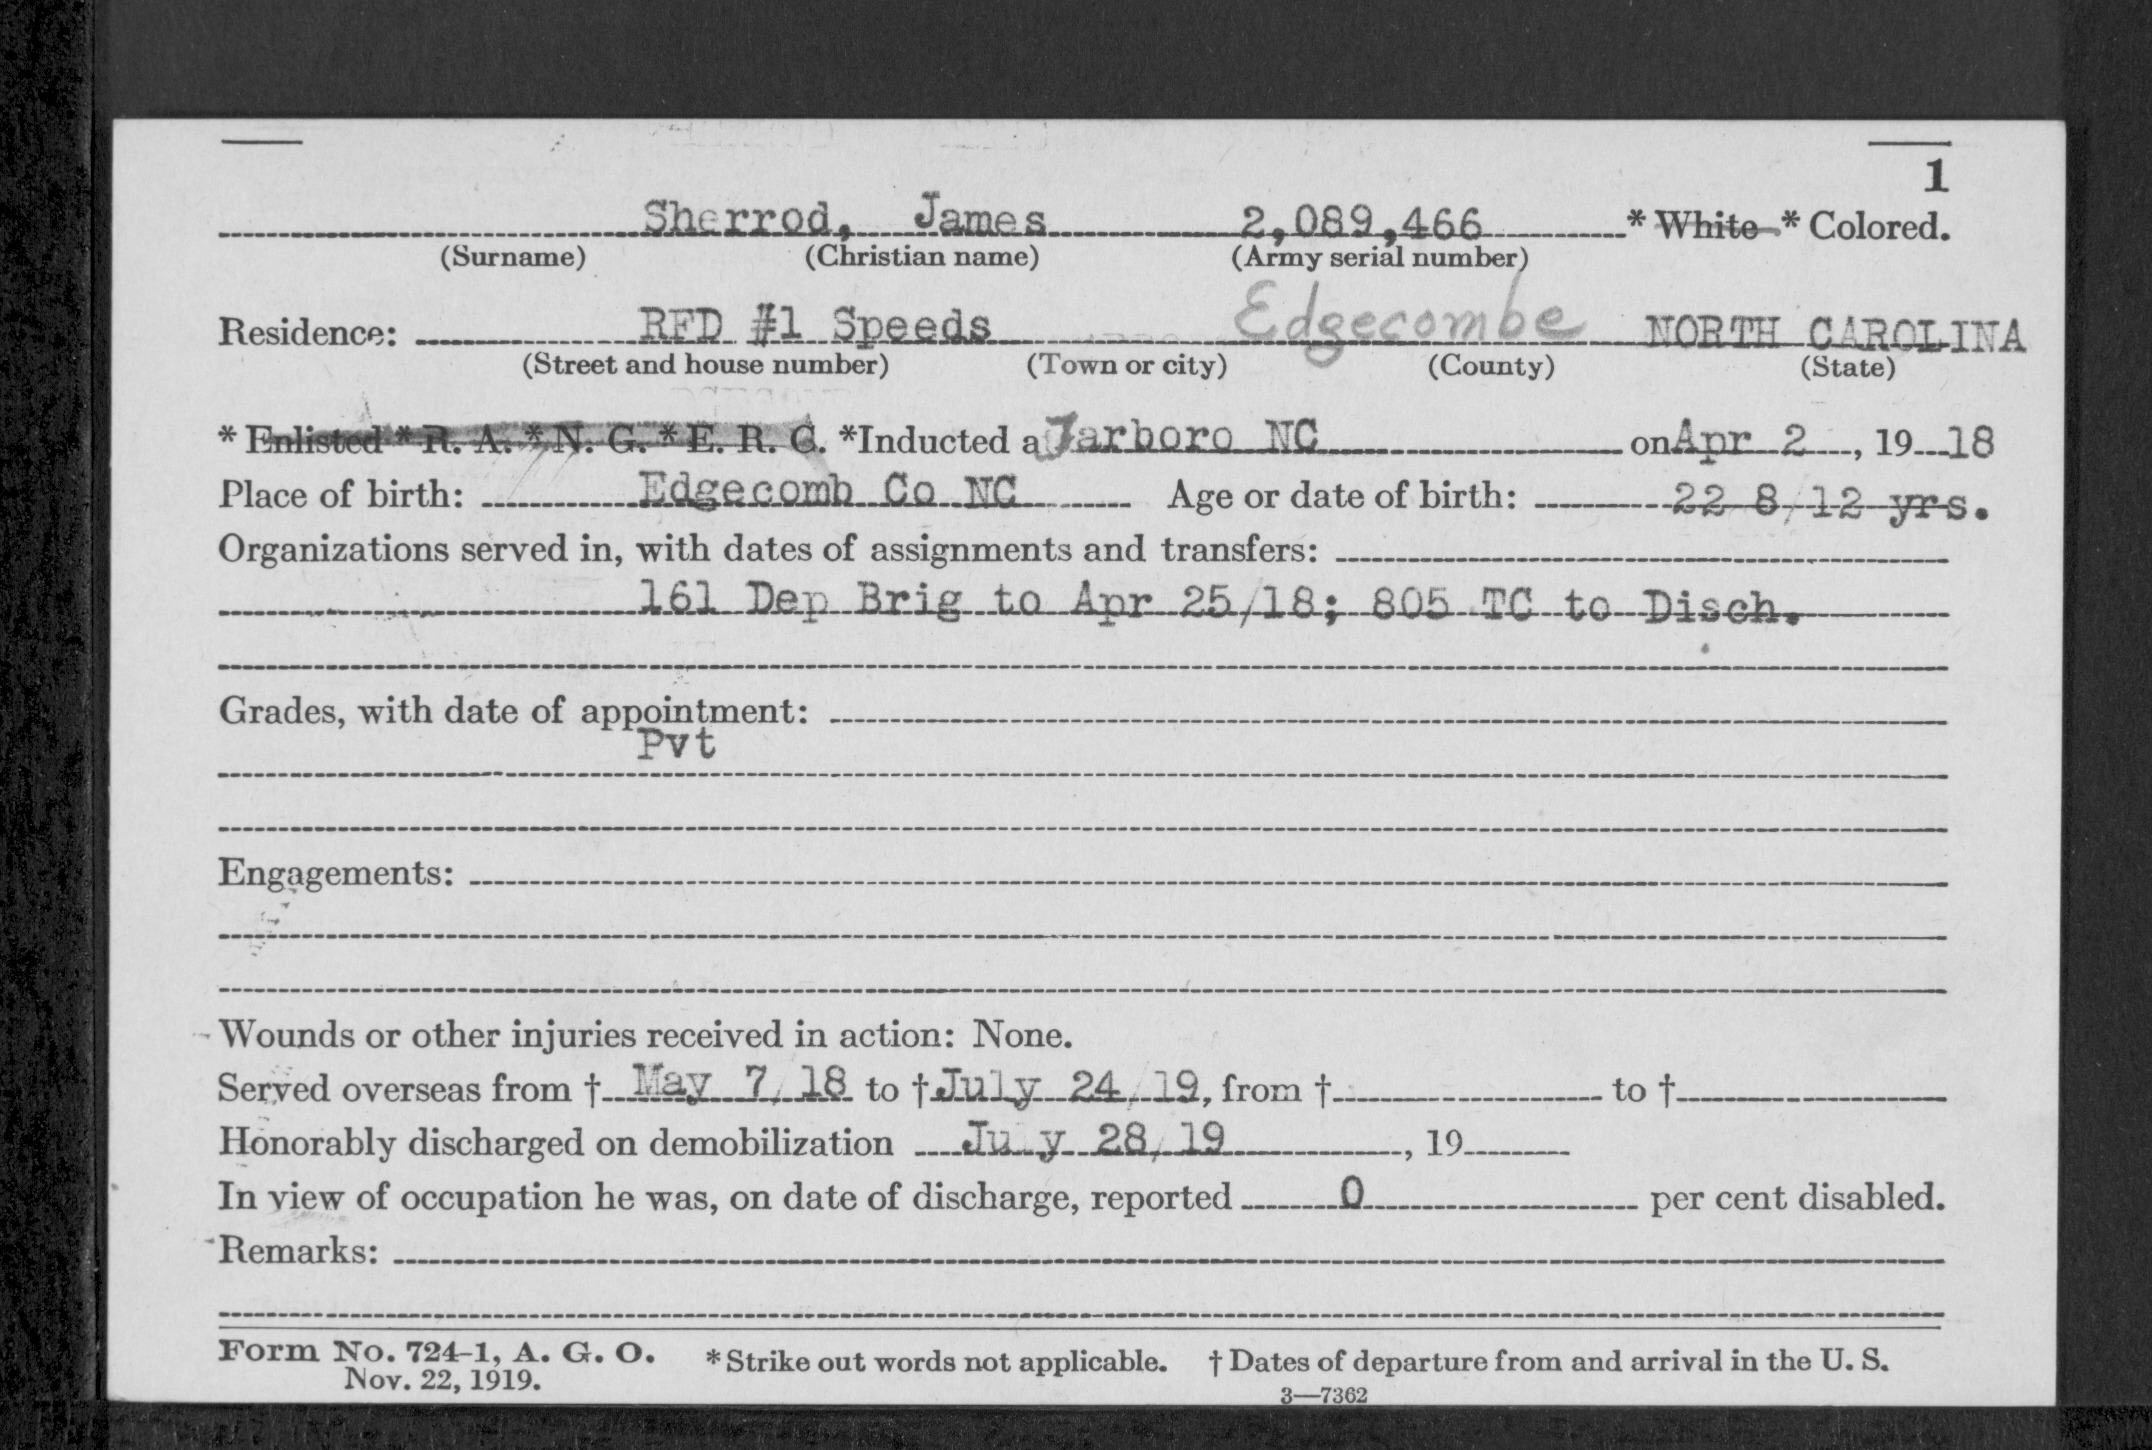 1
Sherrod, James 2,089,466 * White * Colored.
(Surname) (Christian name) (Army serial number)
Residence: RFD #1 Speeds Edgecombe NORTH CAROLINA
(Street and house number) (Town or city) (County) (State)
* Enlisted * R. A. * N. G. * E. R. C. *Inducted a Tarboro NC on Apr 2, 19 18
Place of birth: Edgecomb Co NC Age or date of birth: 22 8/12 yrs.
Organizations served in, with dates of assignments and transfers:
161 Dep Brig to Apr 25/18; 805 TC to Disch.
Grades, with date of appointment:
Pvt
Engagements:
Wounds or other injuries received in action: None.
Served overseas from † May 7/18 to † July 24/19, from † to †
Honorably discharged on demobilization July 28/19, 19
In view of occupation he was, on date of discharge, reported 0 per cent disabled.
Remarks:
Form No. 724-1, A. G. O. * Strike out words not applicable. † Dates of departure from and arrival in the U. S.
Nov. 22, 1919.
3—7362